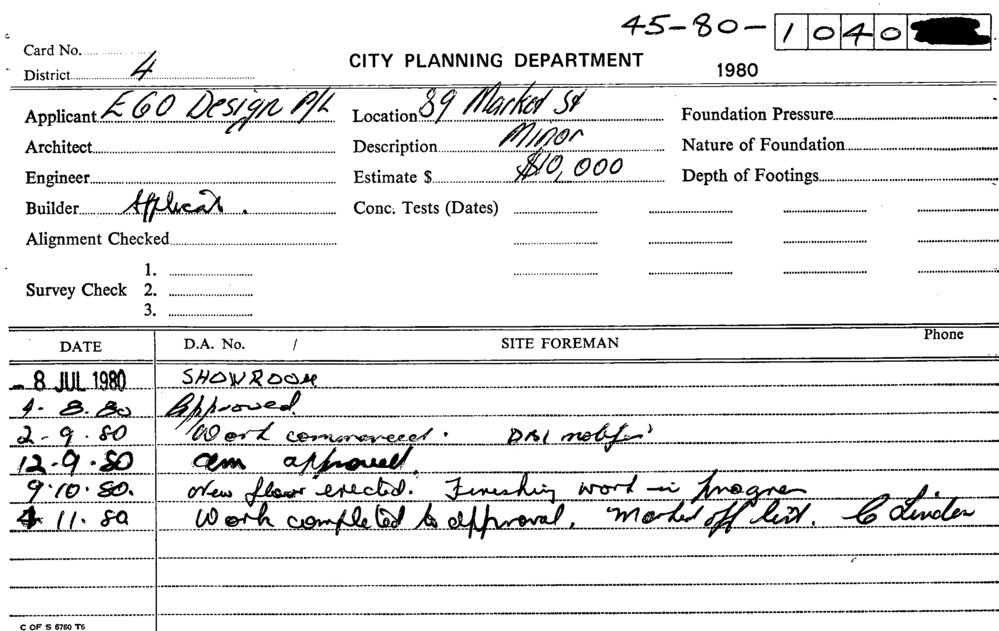 45-80-1040
Card No.
District 4
CITY PLANNING DEPARTMENT
1980
Applicant EGO Design P/L
Location 89 Market St
Foundation Pressure
Architect
Description Minor
Nature of Foundation
Engineer
Estimate $ $10,000
Depth of Footings
Builder Applicant.
Conc. Tests (Dates)
Alignment Checked
Survey Check
1.
2.
3.
DATE D.A. No. / SITE FOREMAN Phone
- 8 JUL 1980 SHOWROOM
4. 8. 80 Approved
2-9.80 Work commenced. DBI
12-9.80 approved.
9.10.80. New floor erected. Finishing work in progress
4 11. 80 Work completed to approval. Marked off list. C Linden
C OF S 6760 T6